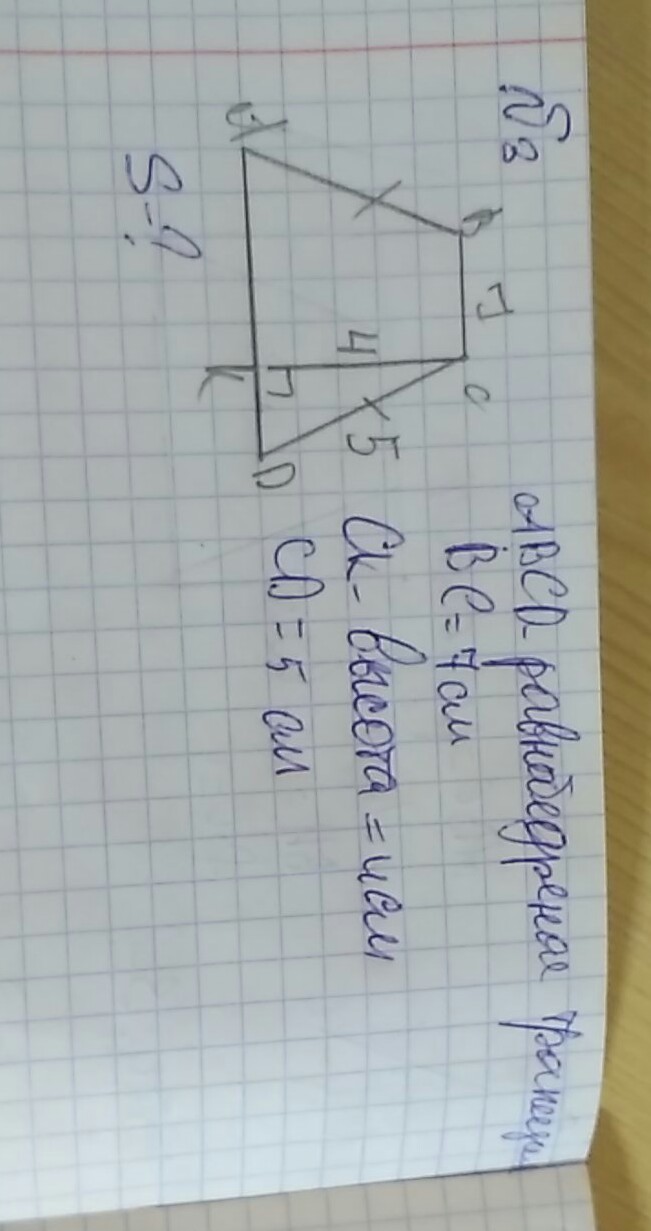 №3
ABCD равнобедренная трапеция
BC = 7 см
CK - высота = 4 см
CD = 5 см
B 7 C
4 5
A K D
S - ?